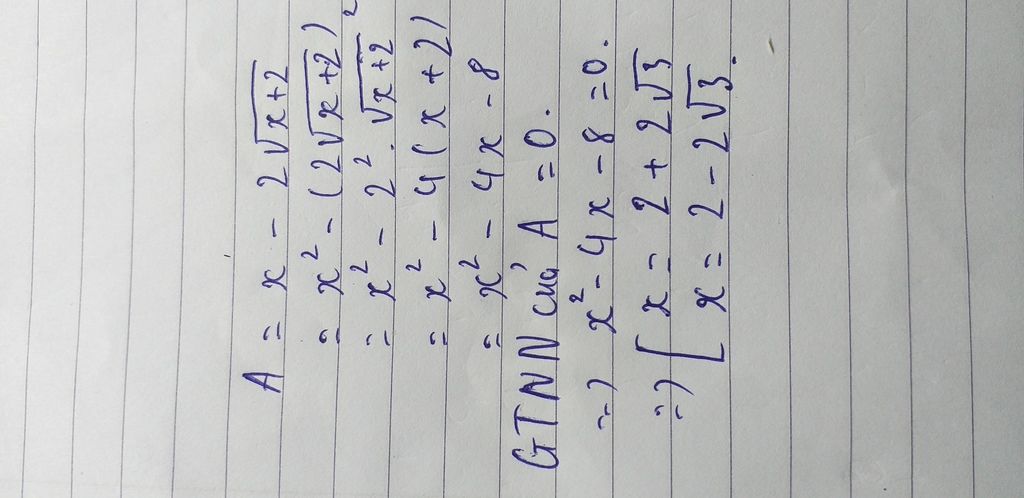 A = x - 2√x+2
= x² - (2√x+2)²
= x² - 2² . √x+2²
= x² - 4(x+2)
= x² - 4x - 8
GTNN của A = 0.
=) x² - 4x - 8 = 0.
=) [ x = 2 + 2√3
x = 2 - 2√3.